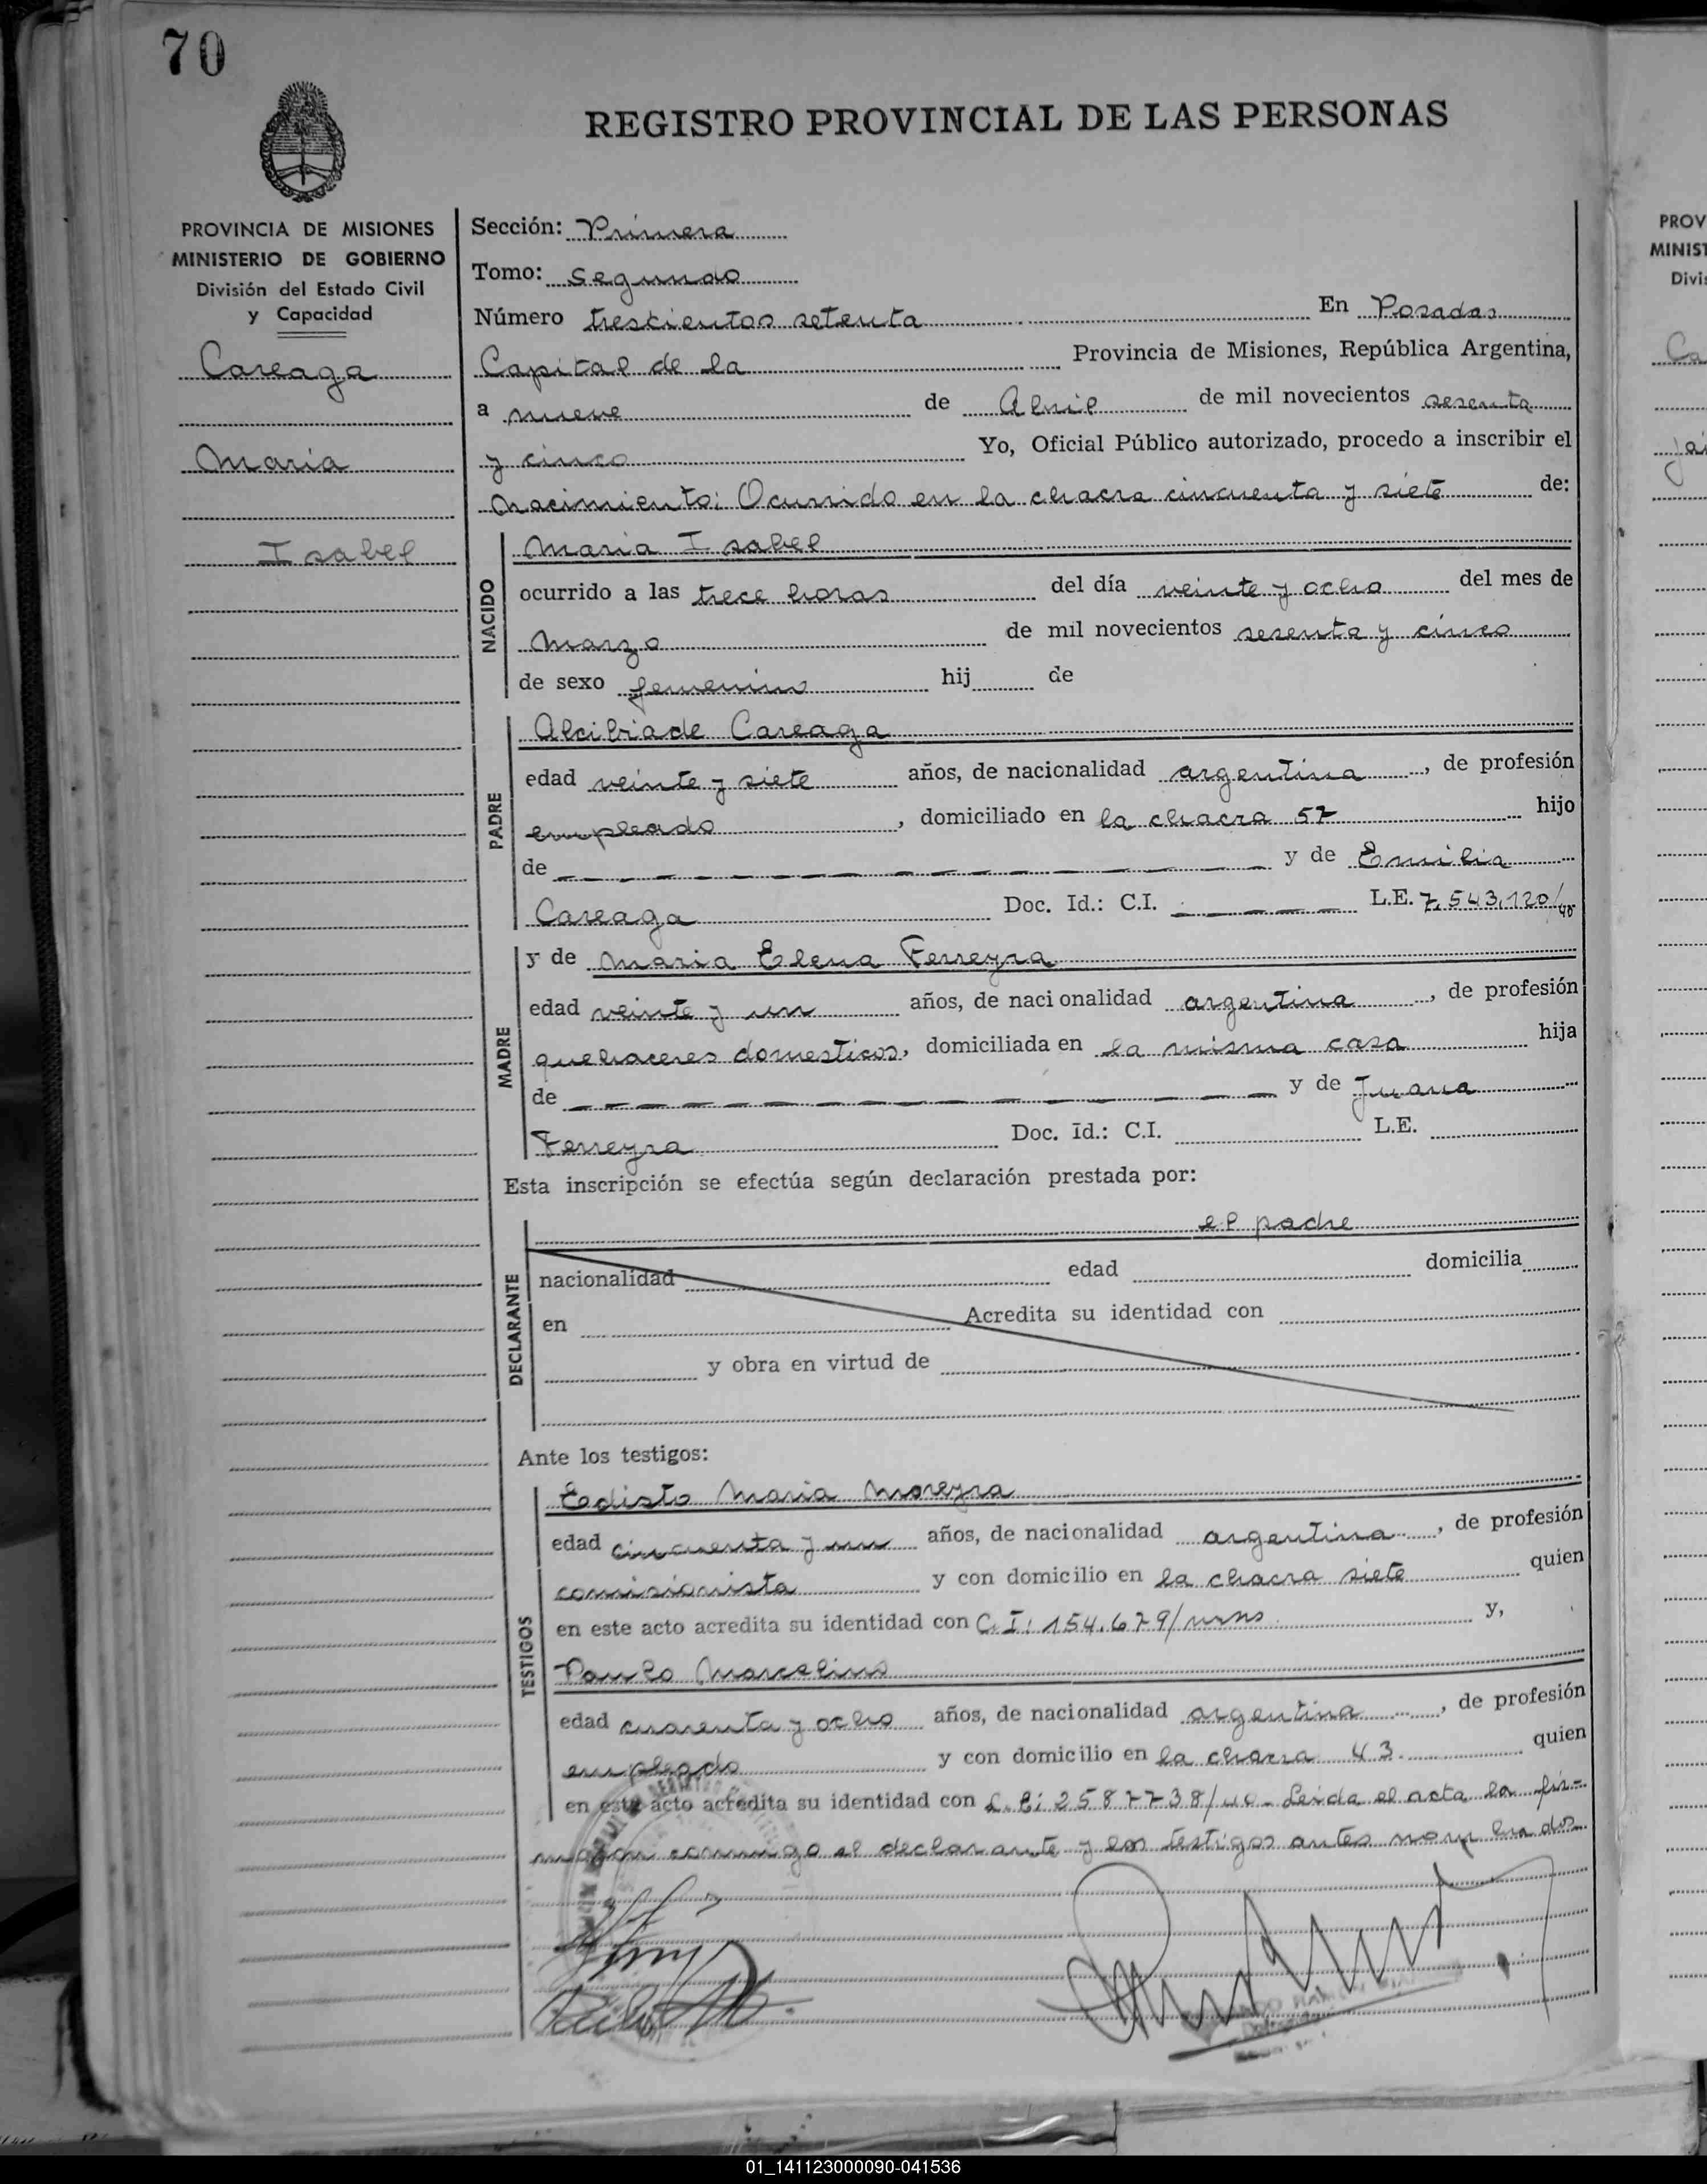 70
REGISTRO PROVINCIAL DE LAS PERSONAS
PROVINCIA DE MISIONES
MINISTERIO DE GOBIERNO
División del Estado Civil
y Capacidad
Careaga
Maria
Isabel
Sección: Primera
Tomo: segundo
Número trescientos setenta En Posadas
Capital de la Provincia de Misiones, República Argentina,
a nueve de Abril de mil novecientos sesenta
y cinco Yo, Oficial Público autorizado, procedo a inscribir el
nacimiento: Ocurrido en la chacra cincuenta y siete de:
NACIDO
Maria Isabel
ocurrido a las trece horas del día veinte y ocho del mes de
Marzo de mil novecientos sesenta y cinco
de sexo femenino hij de
PADRE
Alcibiade Careaga
edad veinte y siete años, de nacionalidad argentina, de profesión
empleado, domiciliado en la chacra 57 hijo
de y de Emilia
Careaga Doc. Id.: C.I. L.E. 7.543.120/40
MADRE
y de Maria Elena Ferreyra
edad veinte y un años, de nacionalidad argentina, de profesión
quehaceres domesticos, domiciliada en la misma casa hija
de y de Juana
Ferreyra Doc. Id.: C.I. L.E.
Esta inscripción se efectúa según declaración prestada por:
DECLARANTE
el padre
nacionalidad edad domicilia
en Acredita su identidad con
y obra en virtud de
Ante los testigos:
TESTIGOS
Edisto Maria Moreyra
edad cincuenta y un años, de nacionalidad argentina, de profesión
comisionista y con domicilio en la chacra siete quien
en este acto acredita su identidad con C.I: 154.679/mns y,
Paulo Marcelino
edad cuarenta y ocho años, de nacionalidad argentina, de profesión
empleado y con domicilio en la chacra 43 quien
en este acto acredita su identidad con L.E: 2587738/40 - Leida el acta la fir-
maron conmigo el declarante y los testigos antes nombrados
PROV
MINIST
Divis
Ca
01_141123000090-041536